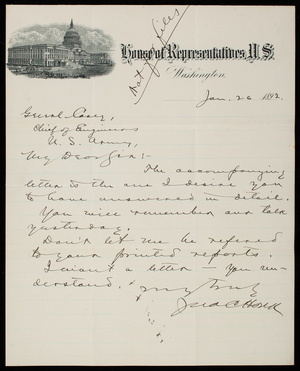 Not for files
House of Representatives, U.S.
Washington,
Jan. 26 1892.
Genral Casey,
Chief of Engineers
U. S. Army,
My Dear Sir:-
The accompanying
letter is the one I desire you
to have answered in detail.
You will remember our talk
yesterday.
Don't let me be refered
to your printed reports.
I want a letter - you un-
derstand.
very truly